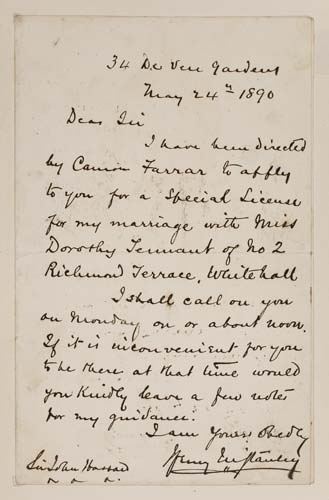 34 De Vere Gardens
May 24th 1890
Dear Sir
I have been directed
by Canon Farrar to apply
to you for a Special License
for my marriage with Miss
Dorothy Tennant of No 2
Richmond Terrace, Whitehall
I shall call on you
on Monday on or about noon.
If it is inconvenient for you
to be there at that time would
you kindly leave a few notes
for my guidance.
I am Yours Obedly
Henry M Stanley
Sir John Hassard